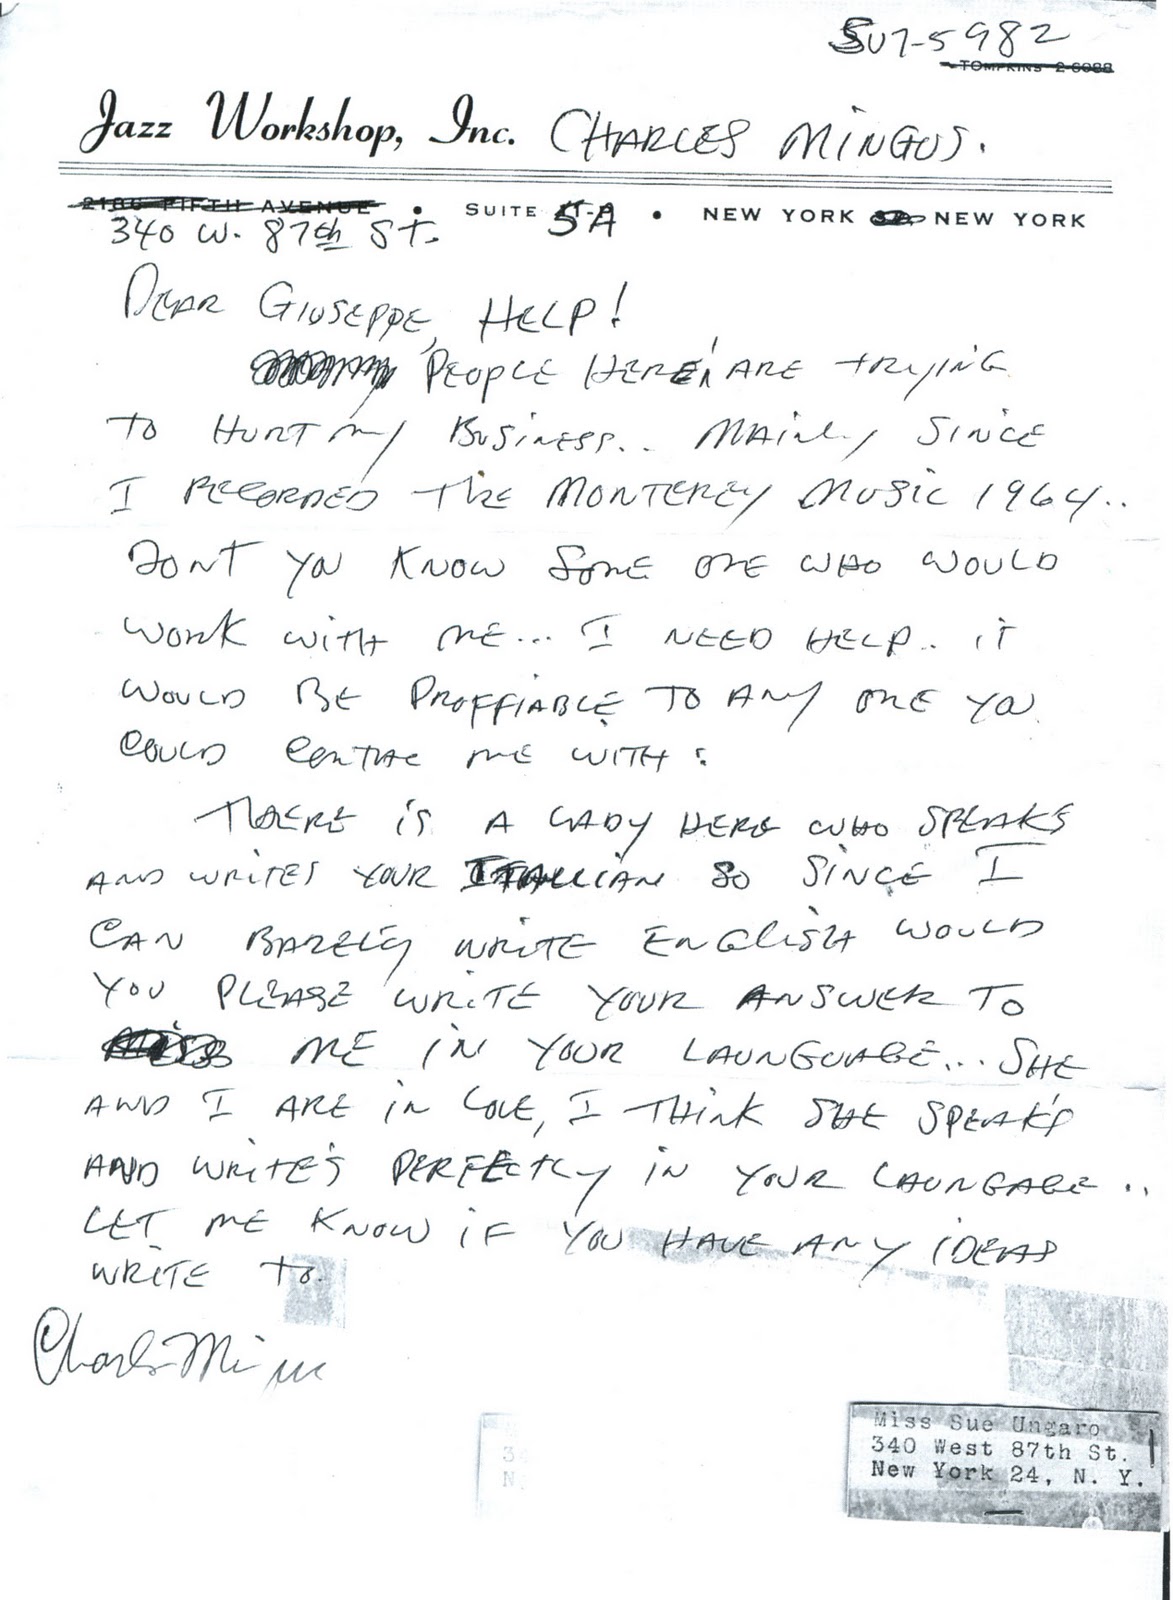 SU7-5982
TOMPKINS 2-6088
Jazz Workshop, Inc. CHARLES MINGUS.
2186 FIFTH AVENUE • SUITE 5A • NEW YORK NEW YORK
340 W. 87th ST.
DEAR GIUSEPPE, HELP!
PEOPLE HERE, ARE TRYING
TO HURT MY BUSINESS.. MAINLY SINCE
I RECORDED THE MONTEREY MUSIC 1964..
DONT YOU KNOW SOME ONE WHO WOULD
WORK WITH ME... I NEED HELP.. IT
WOULD BE PROFFIABLE TO ANY ONE YOU
COULD CONTAC ME WITH:
THERE IS A LADY HERE WHO SPEAKS
AND WRITES YOUR ITALLIAN SO SINCE I
CAN BARELY WRITE ENGLISH WOULD
YOU PLEASE WRITE YOUR ANSWER TO
ME IN YOUR LAUNGUAGE... SHE
AND I ARE IN LOVE, I THINK SHE SPEAKS
AND WRITE'S PERFECTLY IN YOUR LAUNGAGE..
LET ME KNOW IF YOU HAVE ANY IDEAS
WRITE TO.
Charles Mingus
Miss Sue Ungaro
340 West 87th St.
New York 24, N. Y.
34
N.